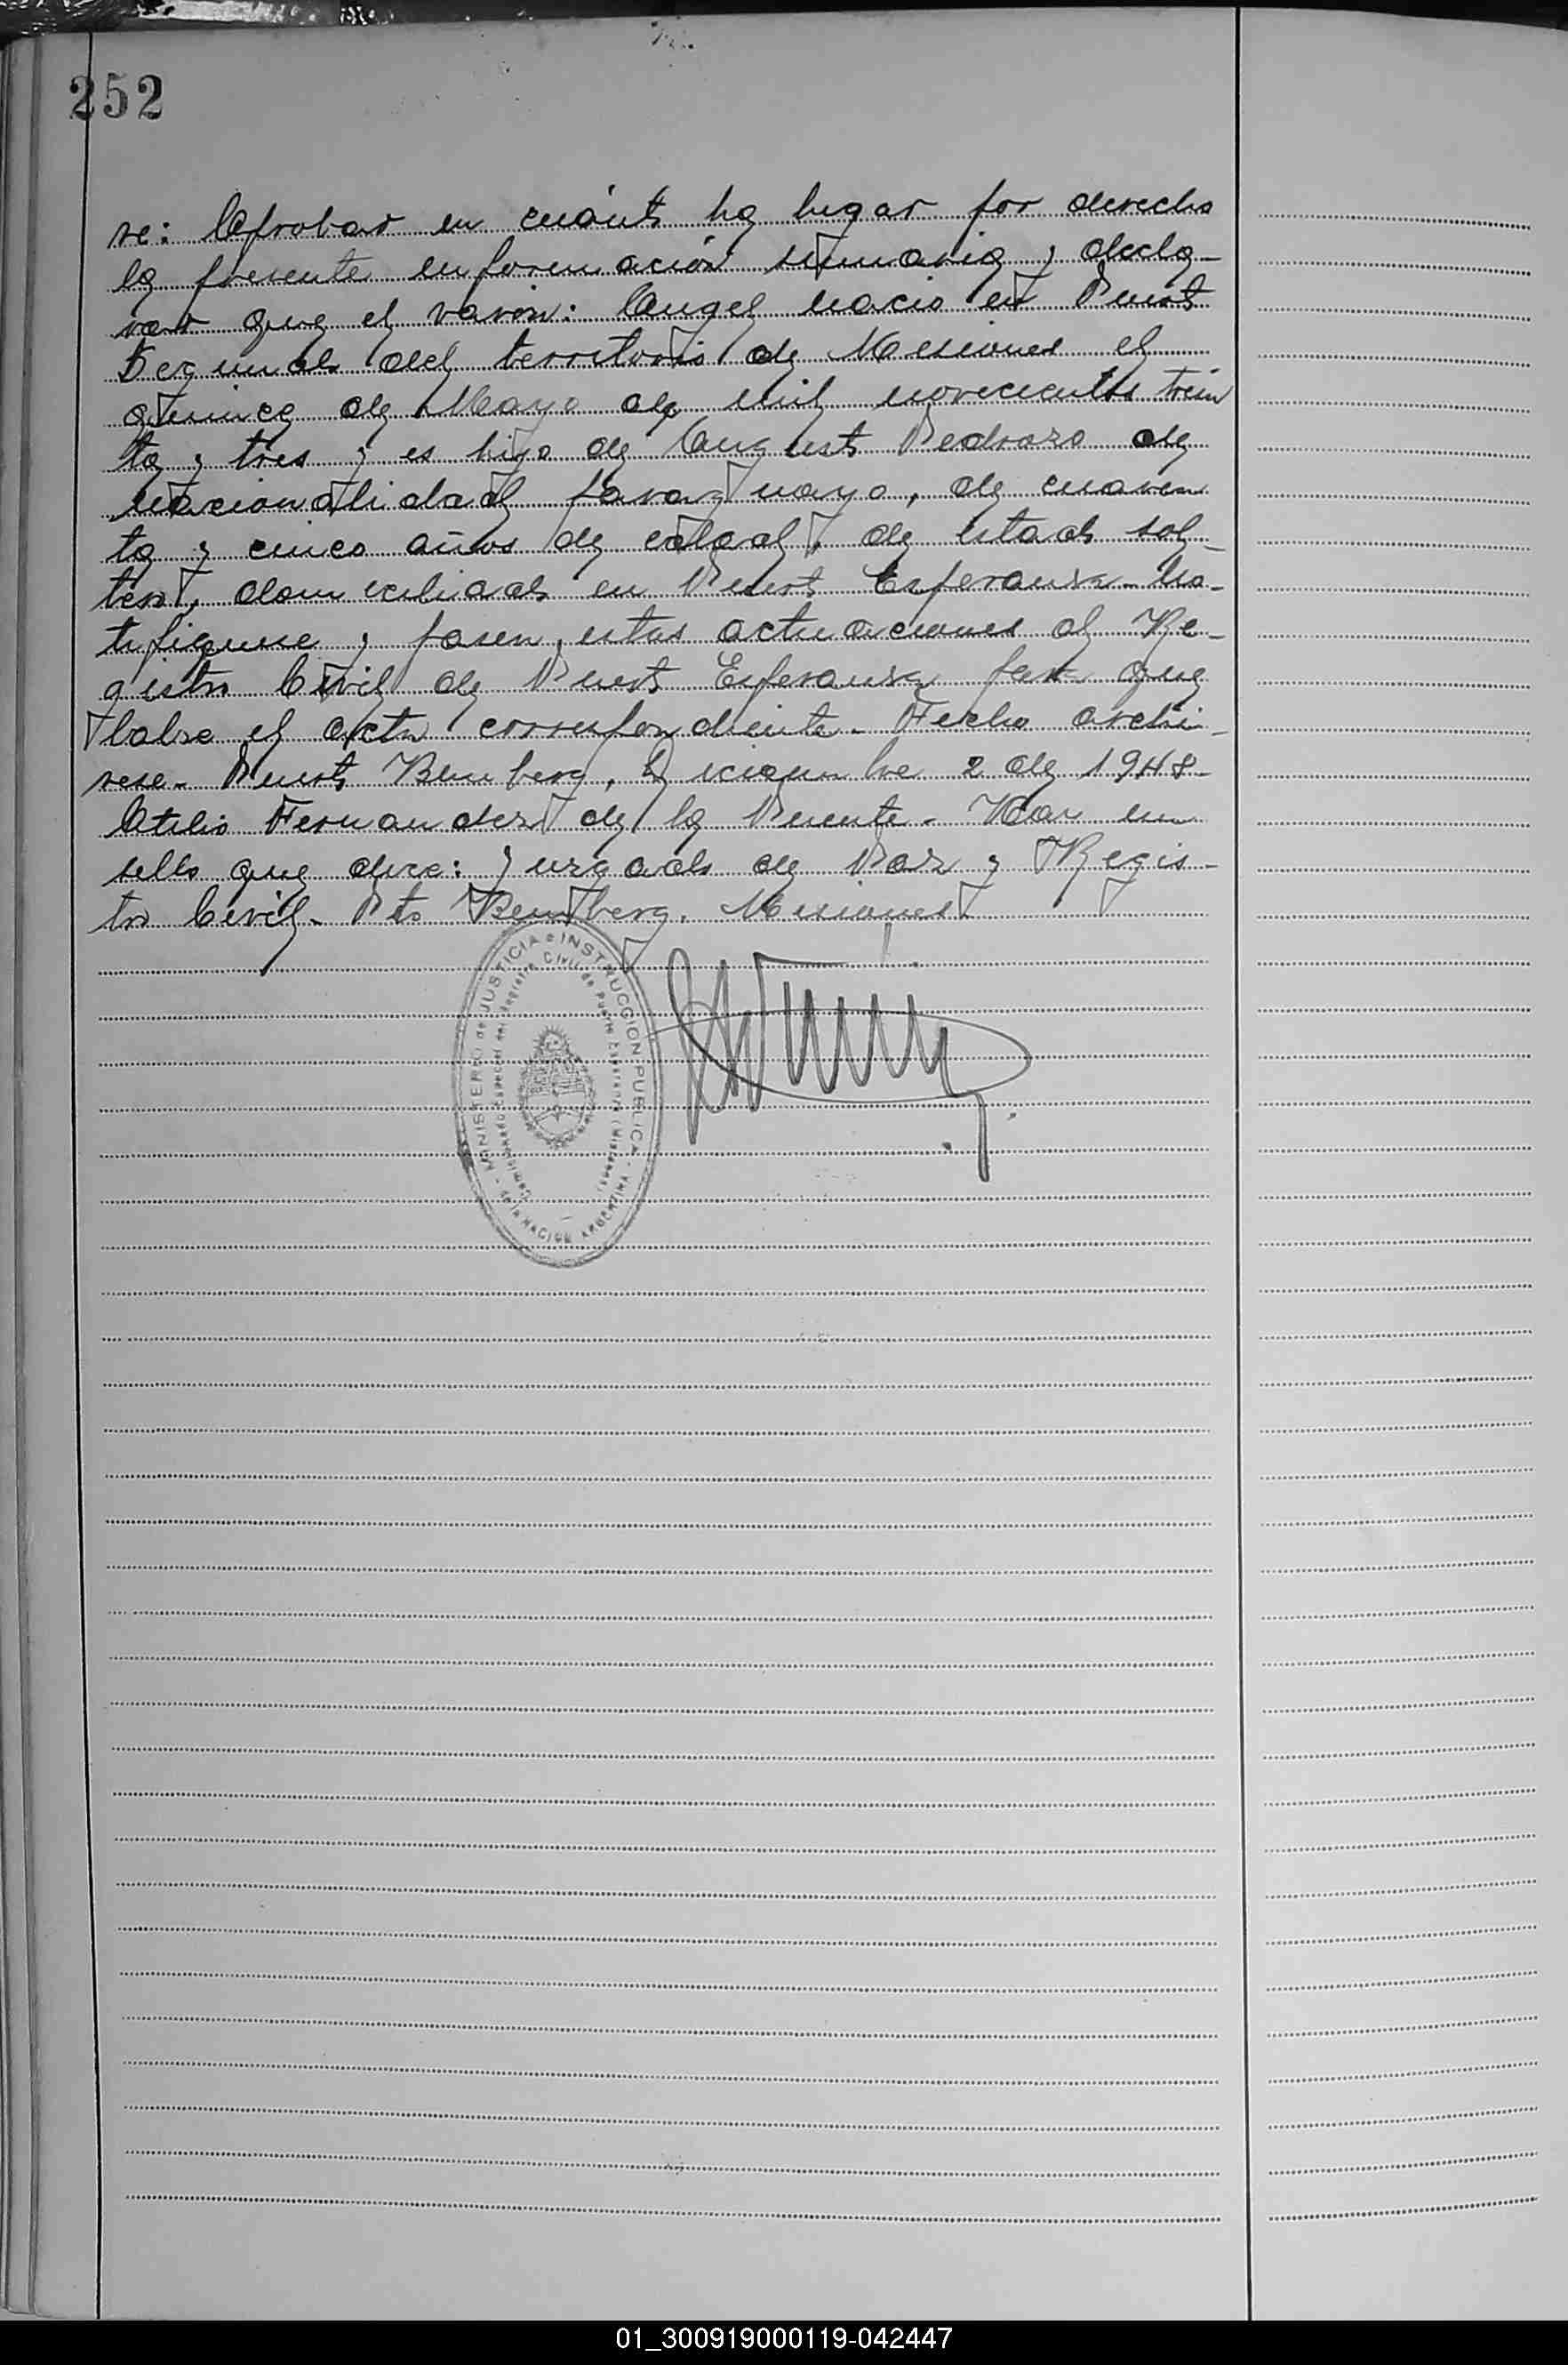 252
ve: Aprobar en cuánto ha lugar por derecho
la presente información sumaria y decla-
rar que el varón: Angel nacio en Puerto
Segundo del territorio de Misiones el
quince de Mayo de mil novecientos trein
ta y tres y es hijo de Augusto Pedrozo de
nacionalidad paraguayo, de cuaren
ta y cinco años de edad, de estado sol-
tero, domiciliado en Puerto Esperanza. No-
tifiquese y pasen, estas actuaciones al Re-
gistro Civil de Puerto Esperanza para que
labre el acta correspondiente. Fecho archi-
vese. Puerto Bemberg, Diciembre 2 de 1948-
Atilio Fernandez de la Puente. Hay un
sello que dice: Juzgado de Paz y Regis-
tro Civil. Pto Bemberg. Misiones
MINISTERIO de JUSTICIA e INSTRUCCION PUBLICA
de la NACION ARGENTINA
Registro Civil de Puerto Esperanza (Misiones)
01_300919000119-042447